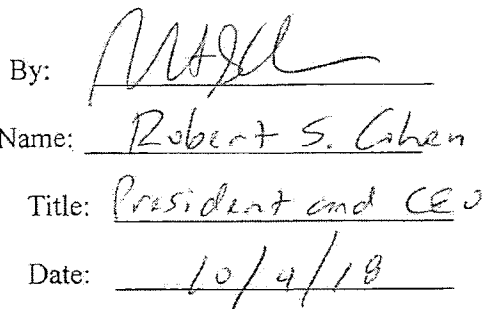 By:
Name: Robert S. Cohen
Title: President and CEO
Date: 10/4/18